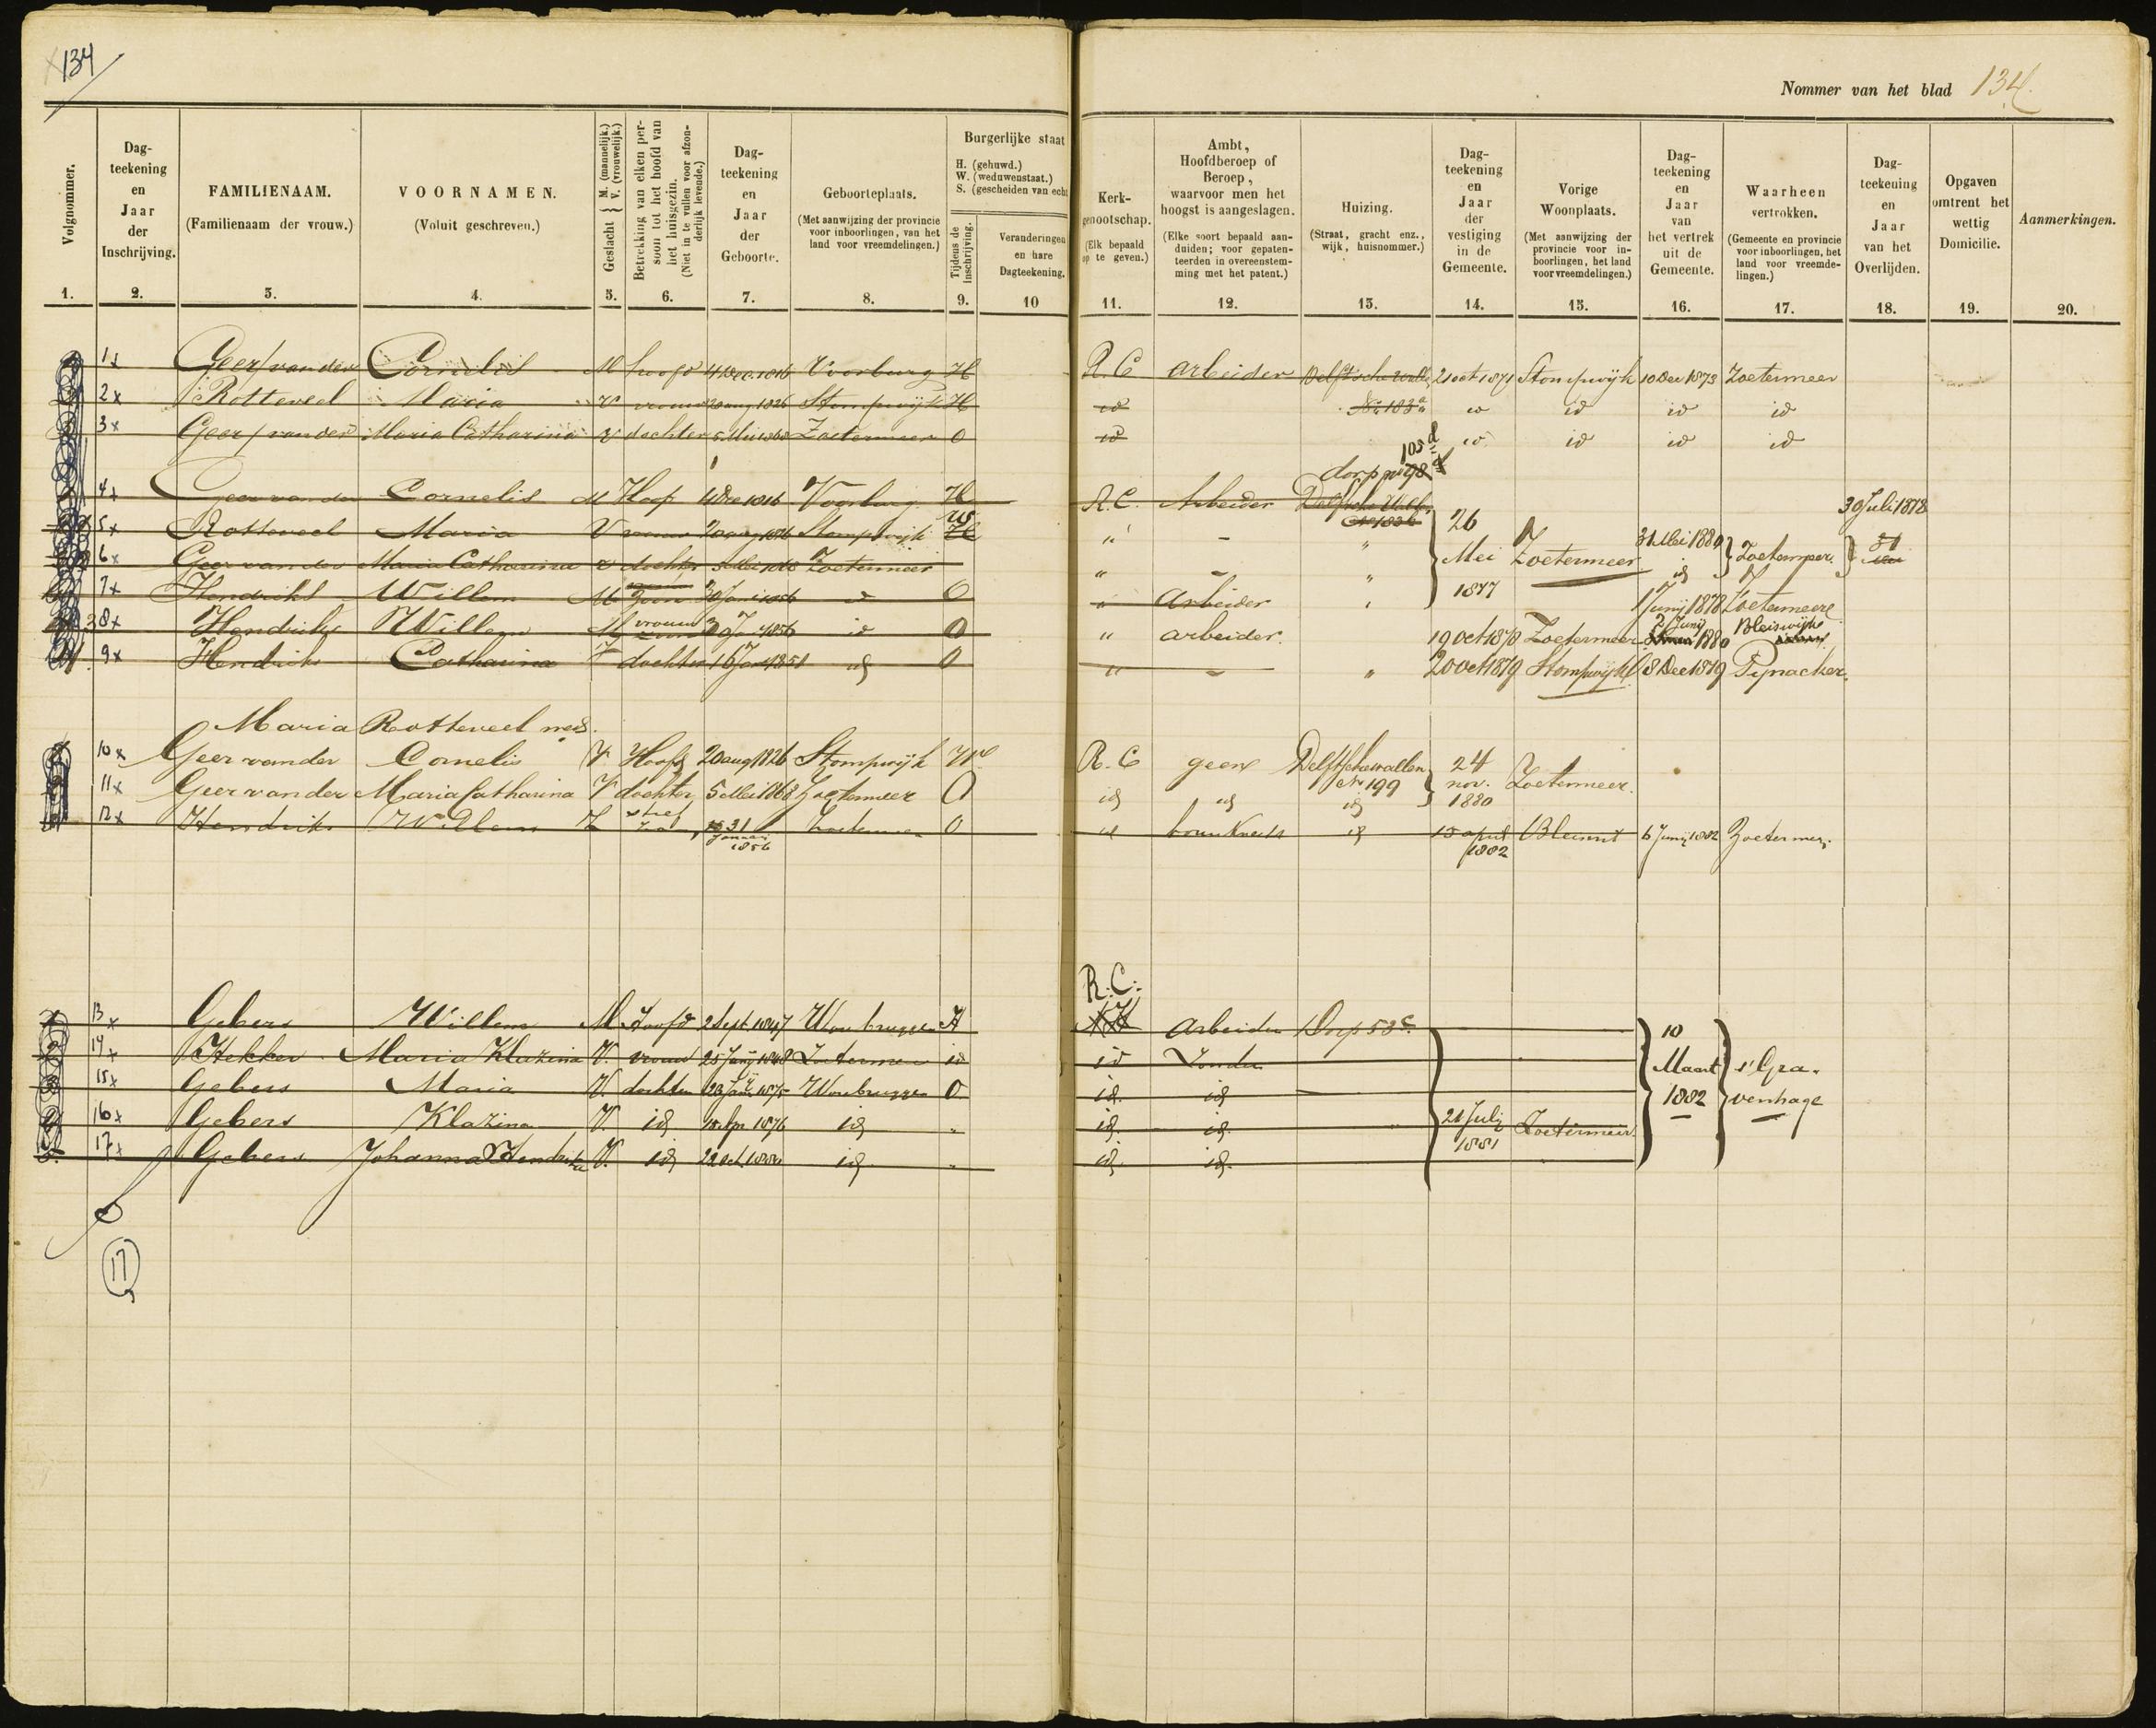 134
Nommer van het blad 134.
Volgnommer.
1.
Dag-
teekening
en
Jaar
der
Inschrijving.
2.
FAMILIENAAM.
(Familienaam der vrouw.)
3.
VOORNAMEN.
(Voluit geschreven.)
4.
Geslacht { M. (mannelijk.) V. (vrouwelijk.)
5.
Betrekking van elken per-
soon tot het hoofd van
het huisgezin.
(Niet in te vullen voor afzon-
derlijk levende.)
6.
Dag-
teekening
en
Jaar
der
Geboorte.
7.
Geboorteplaats.
(Met aanwijzing der provincie
voor inboorlingen, van het
land voor vreemdelingen.)
8.
Burgerlijke staat
H. (gehuwd.)
W. (weduwenstaat.)
S. (gescheiden van echt
Tijdens de
inschrijving.
9.
Veranderingen
en hare
Dagteekening.
10
Kerk-
genootschap.
(Elk bepaald
op te geven.)
11.
Ambt,
Hoofdberoep of
Beroep,
waarvoor men het
hoogst is aangeslagen.
(Elke soort bepaald aan-
duiden; voor gepaten-
teerden in overeenstem-
ming met het patent.)
12.
Huizing.
(Straat, gracht enz.,
wijk, huisnommer.)
13.
Dag-
teekening
en
Jaar
der
vestiging
in de
Gemeente.
14.
Vorige
Woonplaats.
(Met aanwijzing der
provincie voor in-
boorlingen, het land
voor vreemdelingen.)
15.
Dag-
teekening
en
Jaar
van
het vertrek
uit de
Gemeente.
16.
Waarheen
vertrokken.
(Gemeente en provincie
voor inboorlingen, het
land voor vreemde-
lingen.)
17.
Dag-
teekening
en
Jaar
van het
Overlijden.
18.
Opgaven
omtrent het
wettig
Domicilie.
19.
Aanmerkingen.
20.
1x Geer/van der Cornelis M hoofd 4 Dec. 1816 Voorburg H R.C arbeider Delftsche wall 21 oct 1871 Stompwijk 10 Dec 1873 Zoetermeer
2x Rotteveel Maria V vrouw 20 aug 1826 Stompwijk H id No 183a id id id id
3x Geer/van der Maria Catharina V dochter 5 Mei 1868 Zoetermeer O id id id id id
105d
dorp no 98
4x Geer van der Cornelis M Hoof 4 Dec 1816 Voorburg H R.C. Arbeider Delftsche Wall 30 Juli 1878
5x Rotteveel Maria V vrouw 20 aug 1826 Stompwijk H W " - " 26 31 Mei 1880
6x Geer van der Maria Catharina V dochter 5 Mei 1868 Zoetermeer " - " Mei Zoetermeer id Zoetermeer.
7x Hendriks Willem M zoon 30 Jan 1856 id O " arbeider " 1877 1 Junij 1878 Zoetermeer
8x Hendriks Willem M 30 Jan 1856 id O " arbeider. 19 oct 1878 Zoetermeer 2 Junij 1880 Bleiswijk
9x Hendriks Catharina V dochter 16 Jan 1851 id O " - " 20 oct 1879 Stompwijk 8 Dec 1879 Pijnacker.
Maria Rotteveel wed.
10x Geer van der Cornelis V Hoofd 20 aug 1826 Stompwijk W. R.C geen Delftschewallen 24
11x Geer van der Maria Catharina V dochter 5 Mei 1868 Zoetermeer O id id No 199 id nov. 1880 Zoetermeer.
12x Hendriks Willem stief zoon 31 Januari 1856 Zoetermeer O id bouwknecht id 15 april 1882 6 Junij 1882 Zoetermeer
R.C.
13x Gebers Willem M. Hoofd 2 Sept 1847 Woubrugge H Arbeider Dorp 53c.
14x Hekker Maria Klazina V. vrouw 25 Junij 1848 Zoetermeer id id Zonder
15x Gebers Maria V. dochter 1875 Woubrugge O id. id
16x Gebers Klazina V. id 1876 id " id. id.
17x Gebers Johanna Hendrika V. id 22 Oct. id " id. id.
21 Julij 1881 Zoetermeer
10 Maart 1882 s' Gra-
venhage
17